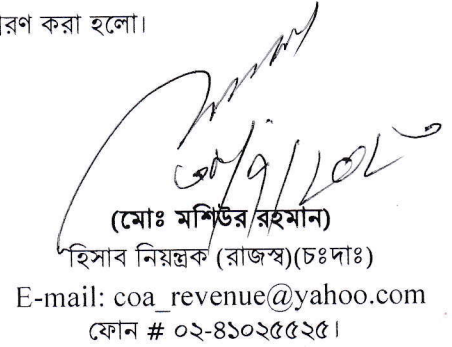 রণ করা হলো।
(মোঃ মশিউর রহমান)
হিসাব নিয়ন্ত্রক (রাজস্ব)(চঃদাঃ)
E-mail: coa_revenue@yahoo.com
ফোন # ০২-৪১০২৫৫২৫।